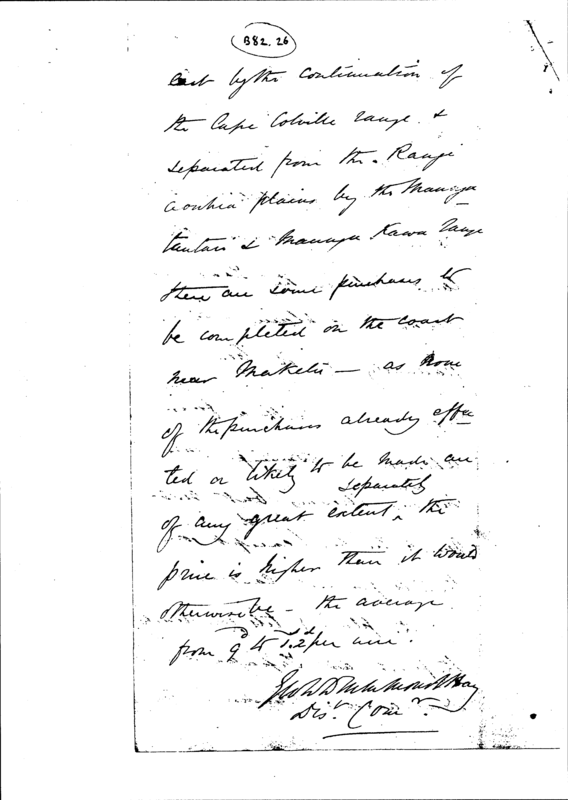 B82.26
East by the Continuation of
the Cape Colville range &
separated from the Rangi
aouhia plains by the Maunga
tautari & Maunga Kawa range
there are some purchases to
be completed on the coast
near Maketu — as none
of the purchases already effec
ted or likely to be made are
separately
of any great extent, the
price is higher than it would
otherwise be — the average
from 9d to 1s.2d per acre.
Dist. Comr.